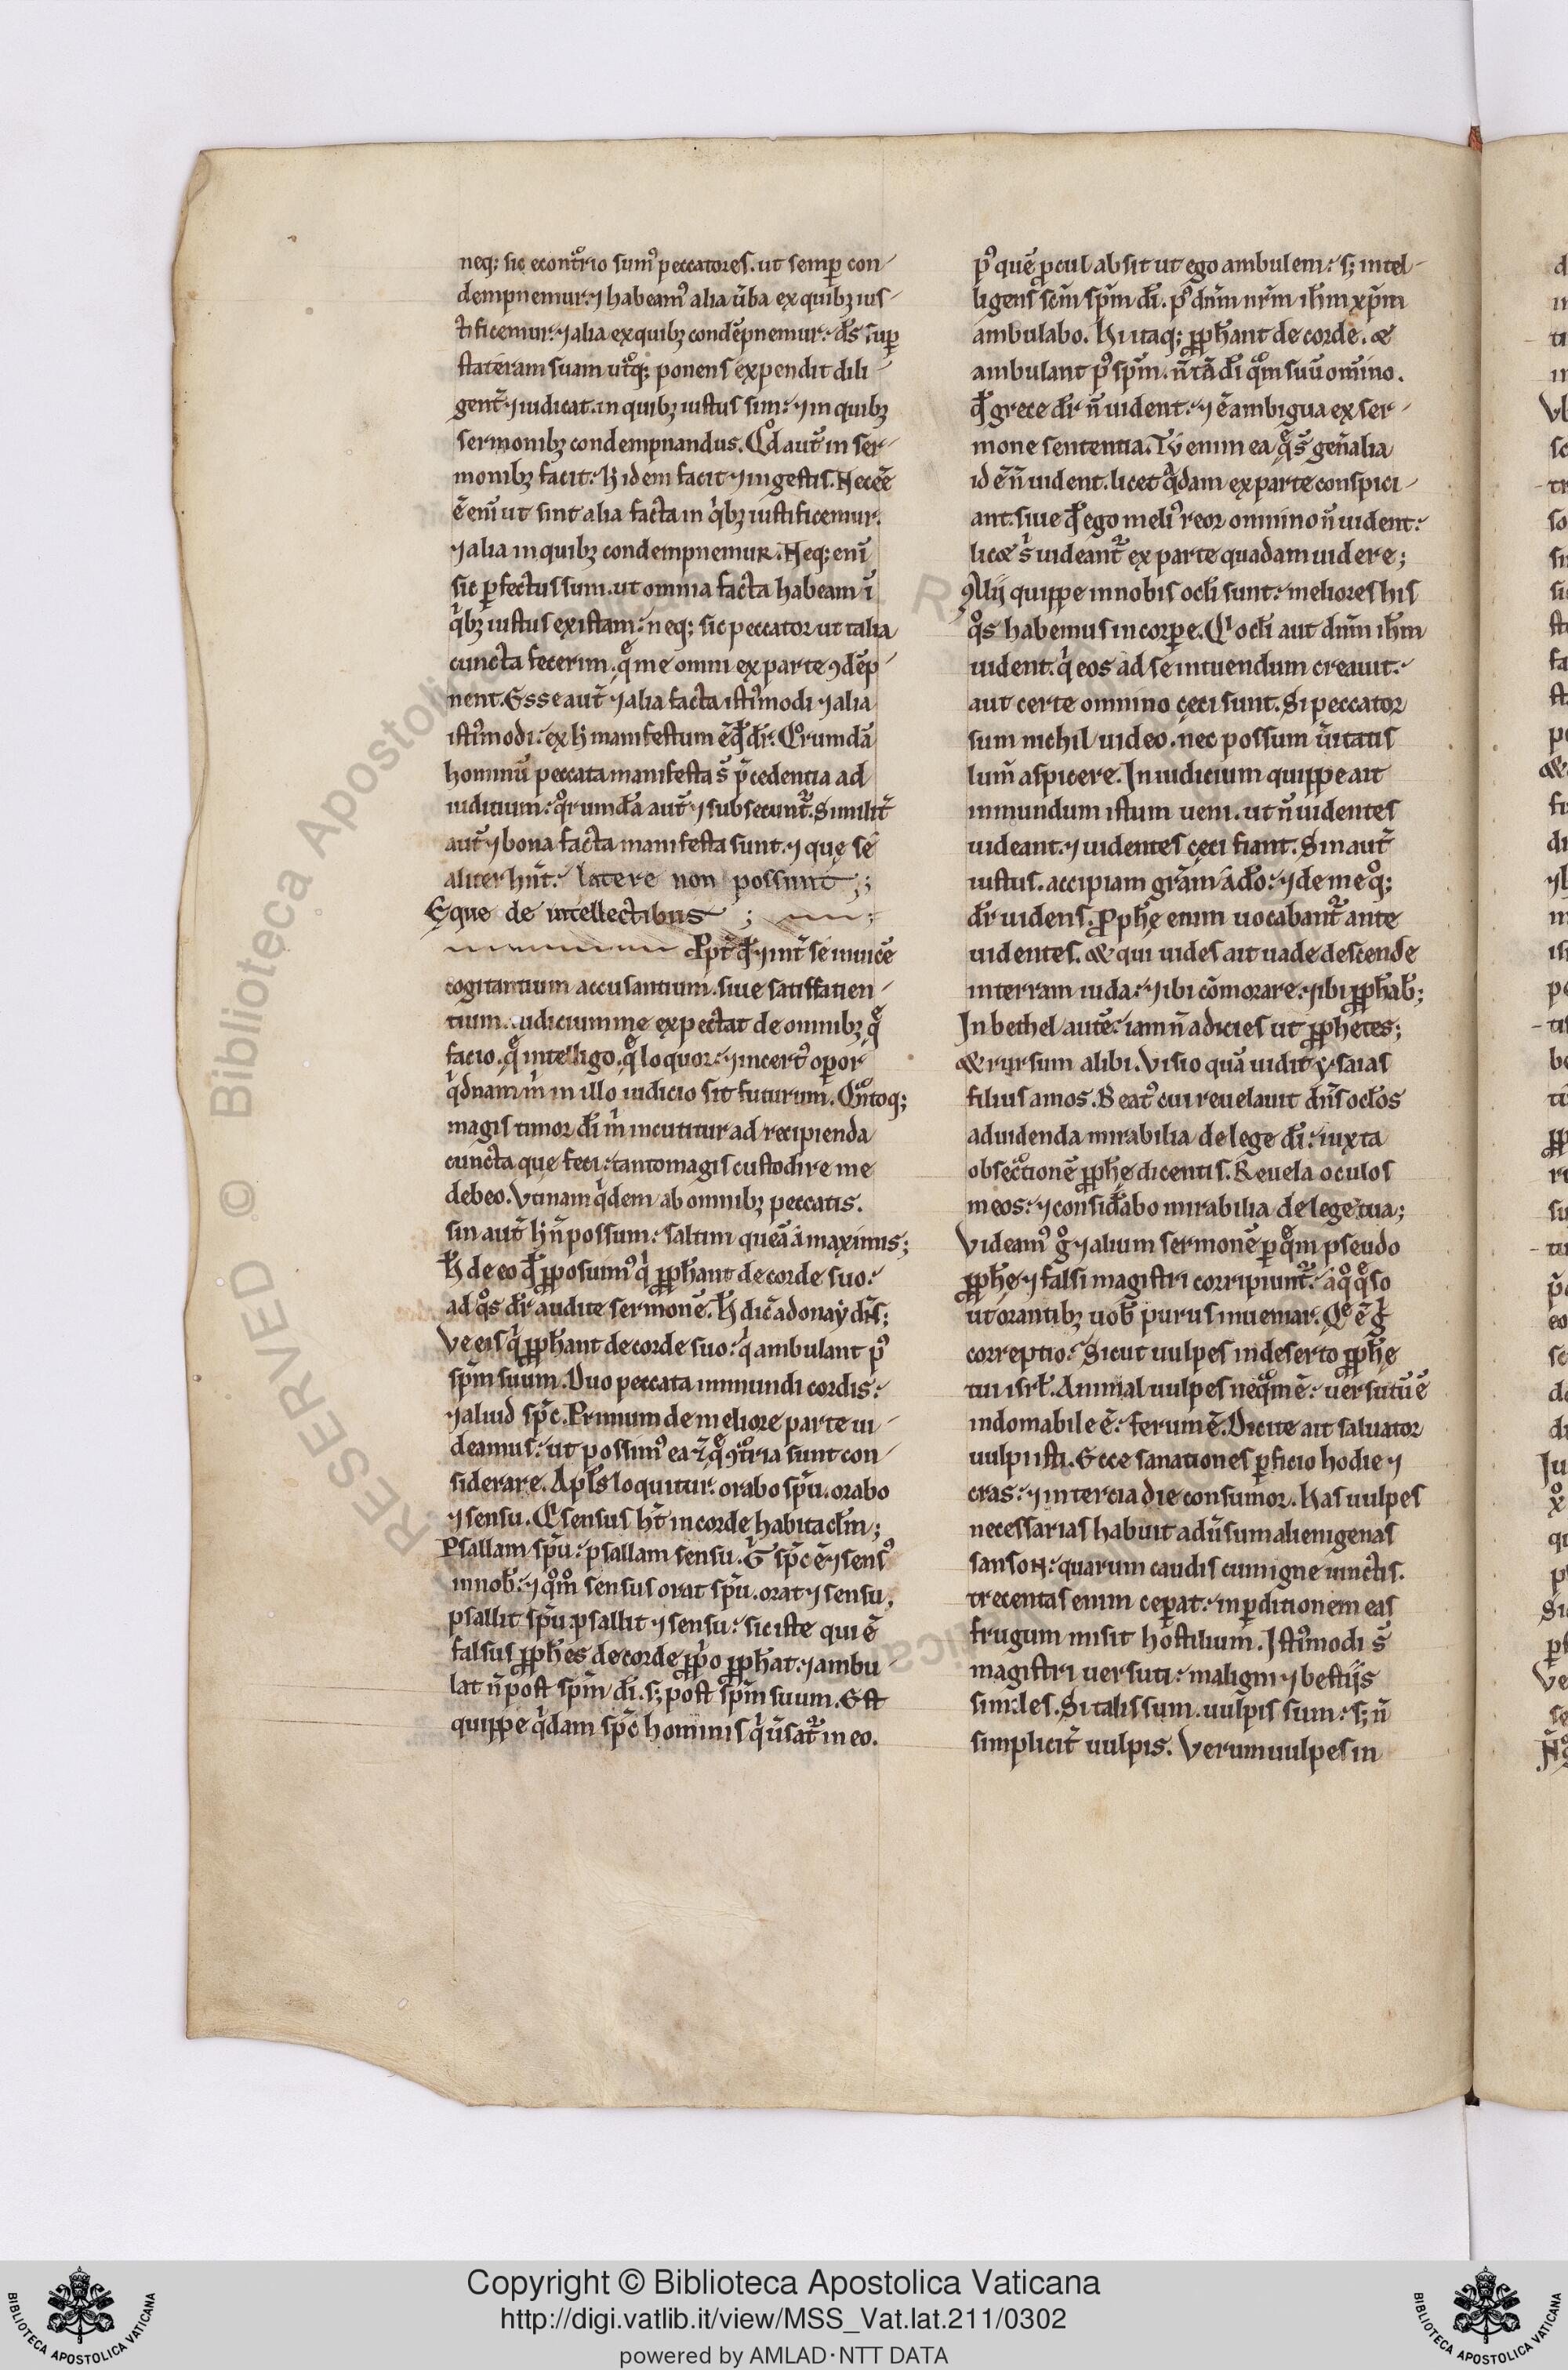 neq; sic econtͦrio sumꝰ peccatores. ut semꝑ con-
dempnemur: ⁊ habeamꝰ alia ũba ex quibꝫ ius-
tificemur: ⁊ alia ex quibꝫ condẽpnemur: dſ̃ suꝑ
stateram suam utͦq; ponens expendit dili-
gent̃ ⁊ iudicat. in quibꝫ iustus sim: ⁊ in quibꝫ
sermonibꝫ condempnandus. Qd̾ aut̃ in ser-
monibꝫ facit: h̾ idem facit ⁊ in gestis. Necẽe
ẽ enĩ ut sint alia facta in qͥbꝫ iustificemur.
⁊ alia in quibꝫ condempnemur. Neq; enĩ
sic ꝑfectus sum. ut omnia facta habeam ĩ
qͥbꝫ iustus existam: neq; sic peccator ut talia
cuncta fecerim. qͤ me omni ex parte ꝯdẽp-
nent. Esse aut̃ ⁊ alia facta istiꝰmodi ⁊ alia
istiꝰmodi: ex h̾ manifestum ẽ qđ dr̃. Qͦrumdã
hominũ peccata manifesta s̃ p̃cedentia ad
iuditium: qͦrumdã aut̃ ⁊ subsecunt̃. Similit̃
aut̃ ⁊ bona facta manifesta sunt. ⁊ que se
aliter hñt: latere non possunt ;
Eque de intellectibus ;
Apt̃ qđ ⁊ int̃ se inuicẽ
cogitantium accusantium. siue satisfatien-
tium. iudicium me expectat de omnibꝫ qͤ
facio. qͤ intelligo. qͤ loquor: ⁊ incertꝰ oꝑor
qͥdnam m̃ in illo iudicio sit futurum. Qͣntoq;
magis timor dĩ m̃ incutitur ad recipienda
cuncta que feci: tanto magis custodire me
debeo. Vtinam qͥdem ab omnibꝫ peccatis.
sin aut̃ h̾ ñ possum: saltim queã a maximis;
H̾ de eo qđ ꝓposuimꝰ qͥ ꝓph̃ant de corde suo:
ad qͦs dr̃ audite sermonẽ. h̾ dic̃ adonay dñs;
Ve eis qͥ ꝓph̃ant de corde suo: qͥ ambulant pꝰ
sp̃m suum. Duo peccata inmundi cordis:
⁊ aliud sp̃c. Primum de meliore parte ui-
deamus: ut possimꝰ ea qͤ ꝯtͣria sunt con-
siderare. Apl̃s loquitur: orabo sp̃u. orabo
⁊ sensu. Qͥ sensus ht̃ in corde habitacl̃m;
Psallam sp̃u: psallam sensu. Gͦ sp̃c ẽ ⁊ sensꝰ
in nob̃: ⁊ qͦmͦ sensus orat sp̃u. orat ⁊ sensu,
psallit sp̃u. psallit ⁊ sensu: sic iste qui ẽ
falsus ꝓph̃es de corde ꝓpͥo ꝓph̃at: ⁊ ambu-
lat ñ post sp̃m dĩ. s; post sp̃m suum. Est
quippe qͥdam sp̃c hominis qͥ ũsat̃ in eo.
pꝰ quẽ ꝓcul absit ut ego ambulem: s; intel-
ligens scm̃ sp̃m dĩ. pꝰ dñm nr̃m ih̃m xp̃m
ambulabo. Hi itaq; ꝓph̃ant de corde. &
ambulant pꝰ sp̃m. ñ tã dĩ qͣm suũ omĩno.
qđ grece dr̃ ñ uident: ⁊ ẽ ambigua ex ser-
mone sententia. Tũ enim ea qͤ s̃ geñalia
id ẽ ñ uident. licet qͣdam ex parte conspici-
ant. siue qđ ego meliꝰ reor omnino ñ uident:
lic& s̾ uideant̃ ex parte quadam uidere;
Alij quippe in nobis ocl̃i sunt: meliores his
qͦs habemus in corꝑe. Qͥ ocl̃i aut dñm ih̃m
uident. qͥ eos ad se intuendum creauit:
aut certe omnino ceci sunt. Si peccator
sum nichil uideo. nec possum ũitatis
lum̃ aspicere. In iudicium quippe ait
in mundum istum ueni. ut ñ uidentes
uideant. ⁊ uidentes ceci fiant. Sin aut̃
iustus. accipiam gr̃am a dõ: ⁊ de me qͦ;
dr̃ uidens. Proph̃e enim uocabant̃ ante
uidentes. & qui uides ait uade descende
in terram iuda: ⁊ ibi cõmorare: ⁊ ibi ꝓph̃ab̃;
In bethel autẽ: iam ñ adicies ut ꝓphetes;
& rursum alibi. Visio quã uidit ysaias
filius amos. Beatꝰ cui reuelauit dñs ocl̃os
ad uidenda mirabilia de lege dĩ: iuxta
obsecͣtionẽ ꝓph̃e dicentis. Reuela oculos
meos: ⁊ consid̾abo mirabilia de lege tua;
Videamꝰ gͦ ⁊ alium sermonẽ ꝑ qͤm pseudo
ꝓph̃e ⁊ falsi magistri corripiunt̃: a qͦ qͤso
ut orantibꝫ uob̃ purus inueniar. Qͤ ẽ gͥ
correptio: Sicut uulpes in deserto ꝓph̃e
tui isrl̃. Animal uulpes neqͣm ẽ: uersutũ ẽ
indomabile ẽ: ferum ẽ. Dicite ait saluator
uulpi isti. Ecce sanationes ꝑficio hodie ⁊
cras: ⁊ in tercia die consumor. Has uulpes
necessarias habuit adũsum alienigenas
sanson: quarum caudis cum igne iunctis.
trecentas enim ceꝑat: in ꝑditionem eas
frugum misit hostilium. Istiꝰmodi s̃
magistri uersuti: maligni ⁊ bestijs
similes. Si talis sum. uulpis sum: s; ñ
simplicit̃ uulpis. Verum uulpes in
Copyright © Biblioteca Apostolica Vaticana
http://digi.vatlib.it/view/MSS_Vat.lat.211/0302
powered by AMLAD·NTT DATA